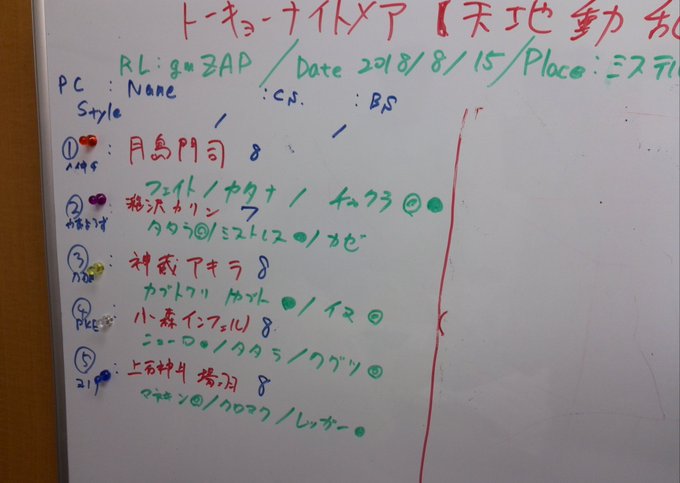 トーキョーナイトメア【天地動乱
RL:guZAP / Date 2018/8/15/Place:ミステル
PC : Name : CS. : BS
Style / /
① : 月島門司 8
フェイト/カタナ/チャクラ◎●
② : 滝沢カリン 7
タタラ◎/ミストレス●/カゼ
③ : 神威アキラ 8
カブトワリ カブト●/イヌ◎
④ : 小森インフェルノ 8
PKE
ニューロ●/タタラ/クグツ◎
⑤ : 上石神井揚羽 8
マネキン◎/クロマク/レッガー●